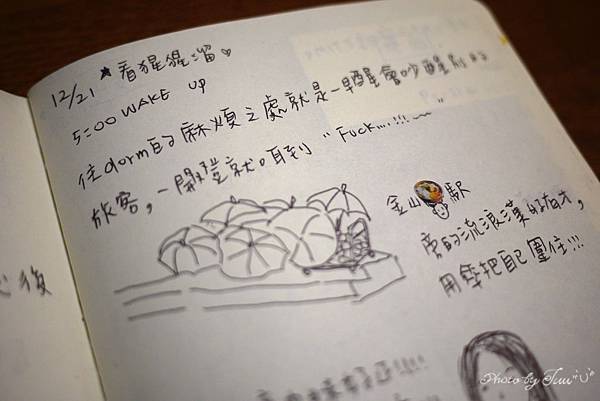 12/21 ★看猩猩溜♡
5:00 WAKE UP
住dorm的麻煩之處就是一早醒會吵醒別的
旅客,一開燈就叫到 "Fuck....!!!~~"
金山 駅
旁的流浪漢好有才,
用傘把自己圍住!!!
後
Photo by Juu